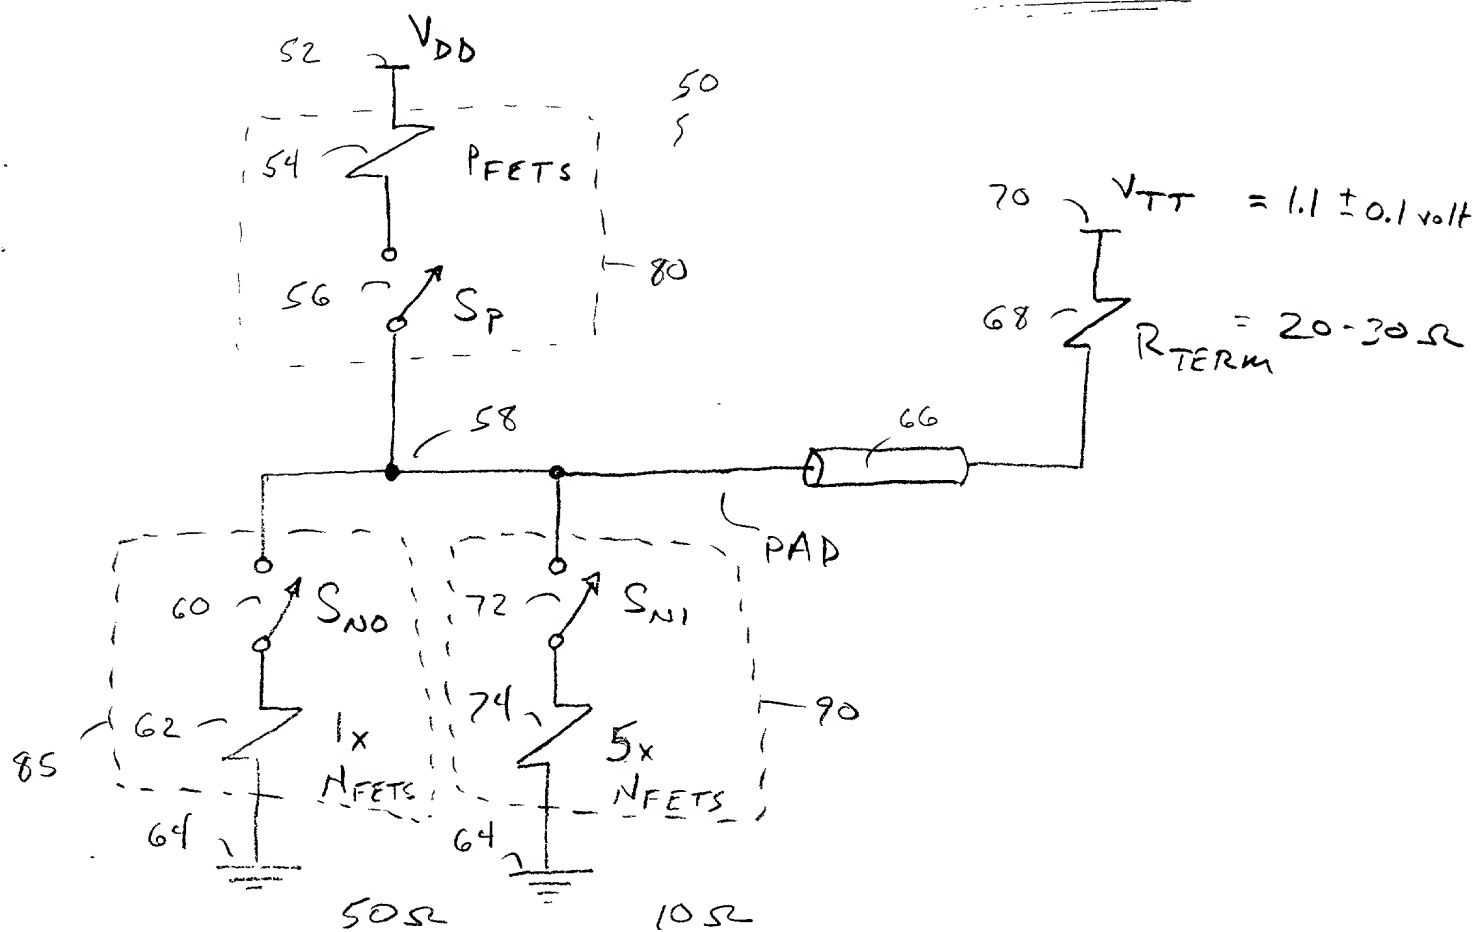 52 VDD
50
54 PFETS
70 VTT = 1.1 ± 0.1 volt
80
56 SP
68 RTERM = 20-30Ω
58
66
PAD
60 SN0
72 SN1
62 1x NFETS
74 5x NFETS
90
85
64
64
50Ω
10Ω